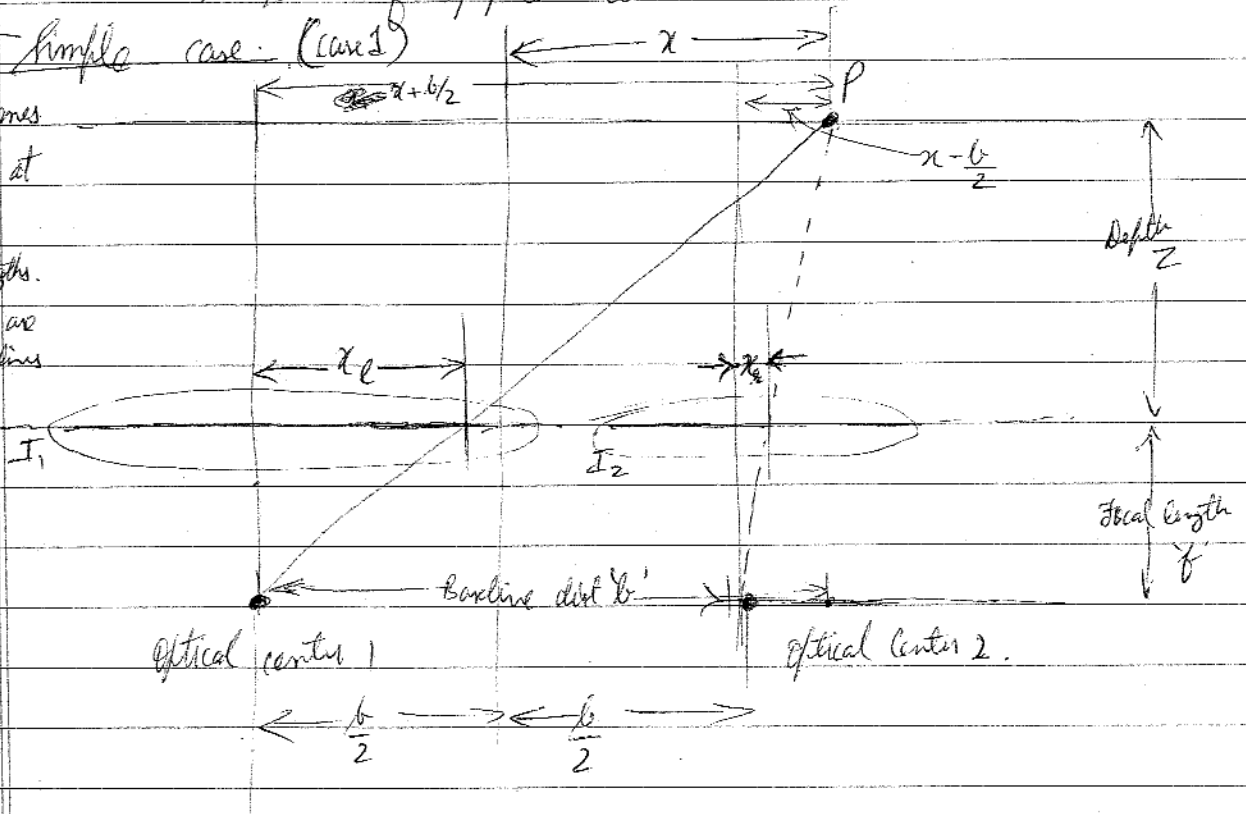 Simple case. (case 1)
x
x + b/2
P
x - b/2
at
Depth
Z
are
x_l
x_r
I_1
I_2
Focal length
'f'
Baseline dist 'b'
optical center 1
optical center 2.
b/2
b/2